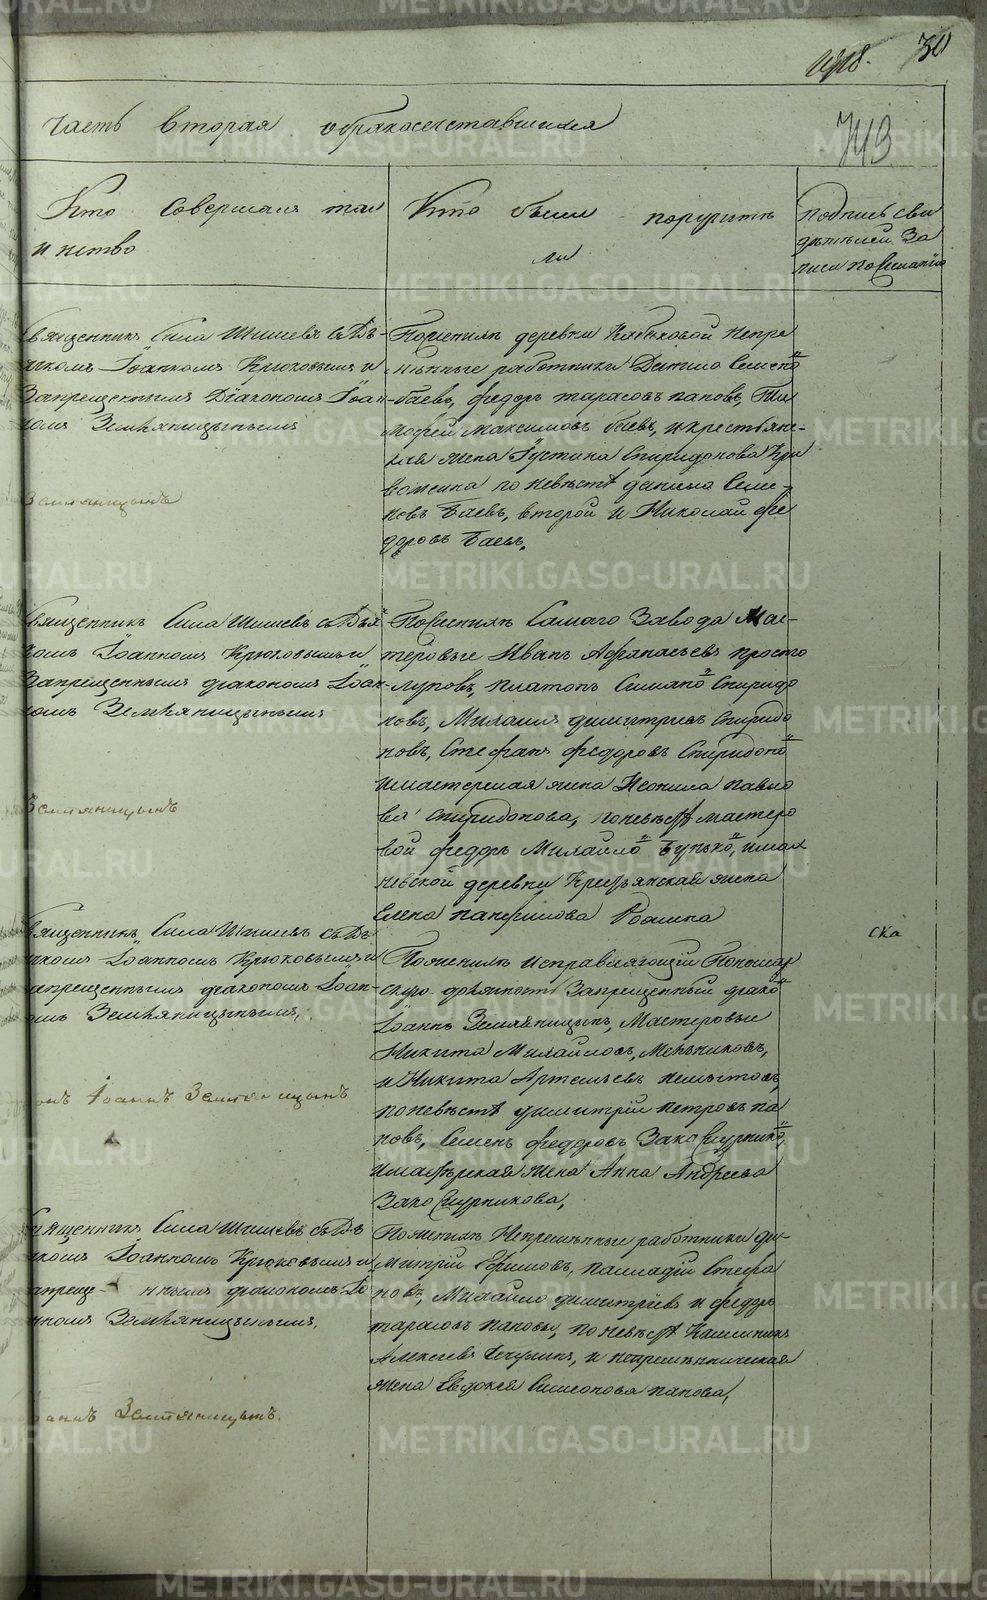 30
часть вторая обракосочетавшихся
743
Кто совершалъ таи
инство
Кто были поручите
ли
подпись сви
дѣтелей За
писи по желанію
священникъ Сила Шишевъ съ Дья-
чкомъ Іоанномъ Крюковымъ и
Запрещеннымъ Діакономъ Іоан-
номъ Земляницынымъ
Земляницынъ
Пожениху деревни Кабаковой Непре
мѣнные работники Данило Семено
Баевъ, Федоръ тарасовъ паповъ, Ти
мофей Максимовъ баевъ, икрестьян-
ская жена Іустина Спиридонова Кри
воногина по невѣстѣ данила Семе-
новъ Баевъ, второй и Николай фе
доровъ Баевъ.
священникъ Сила Шишевъ съ Дья
комъ Іоанномъ Крюковымъ и
Запрещеннымъ діакономъ Іоан
номъ Земляницынымъ
Земляницынъ
Пожениху Самаго Завода Мас-
теровые Иванъ Афанасьевъ просто
луповъ, платонъ Симано Спиридо
новъ, Михаилъ димитріевъ Спиридо
новъ, Стефанъ федоровъ Спиридоно
имастерская жена Неонила павло
ва спиридонова, поневѣстѣ мастеро
вой федоръ Михайло Бунько,
невской деревни Крестьянская жена
Елена панфилова
священникъ Сила Шишевъ съ Дья
чкомъ Іоанномъ Крюковымъ и
запрещеннымъ діакономъ Іоан-
омъ Земляницынымъ.
онъ Іоаннъ Земляницынъ
ска
Пожениху исправляющій Пономар
скую должность Запрещенный діако
Іоаннъ Земляницынъ, Мастеровые
Никита Михайловъ, Меньшиковъ,
и Никита Артемьевъ
поневѣстѣ димитрій петровъ па
повъ, Семенъ федоровъ Закожурнико,
имастерская жена Анна Андреева
Закожурникова,
священникъ Сила Шишевъ съ Дья
чкомъ Іоанномъ Крюковымъ и
запреще- ннымъ діакономъ Іо
нномъ Земляницынымъ.
оаннъ Земляницынъ.
Пожениху Непремѣнные работники ди-
митрій Ефимовъ, палладій Стефа
новъ, Михайло димитріевъ и федоръ
тарасовъ паповы, поневѣстѣ
Алексѣевъ и непремѣнническая
жена Евдокея Симеонова папова,